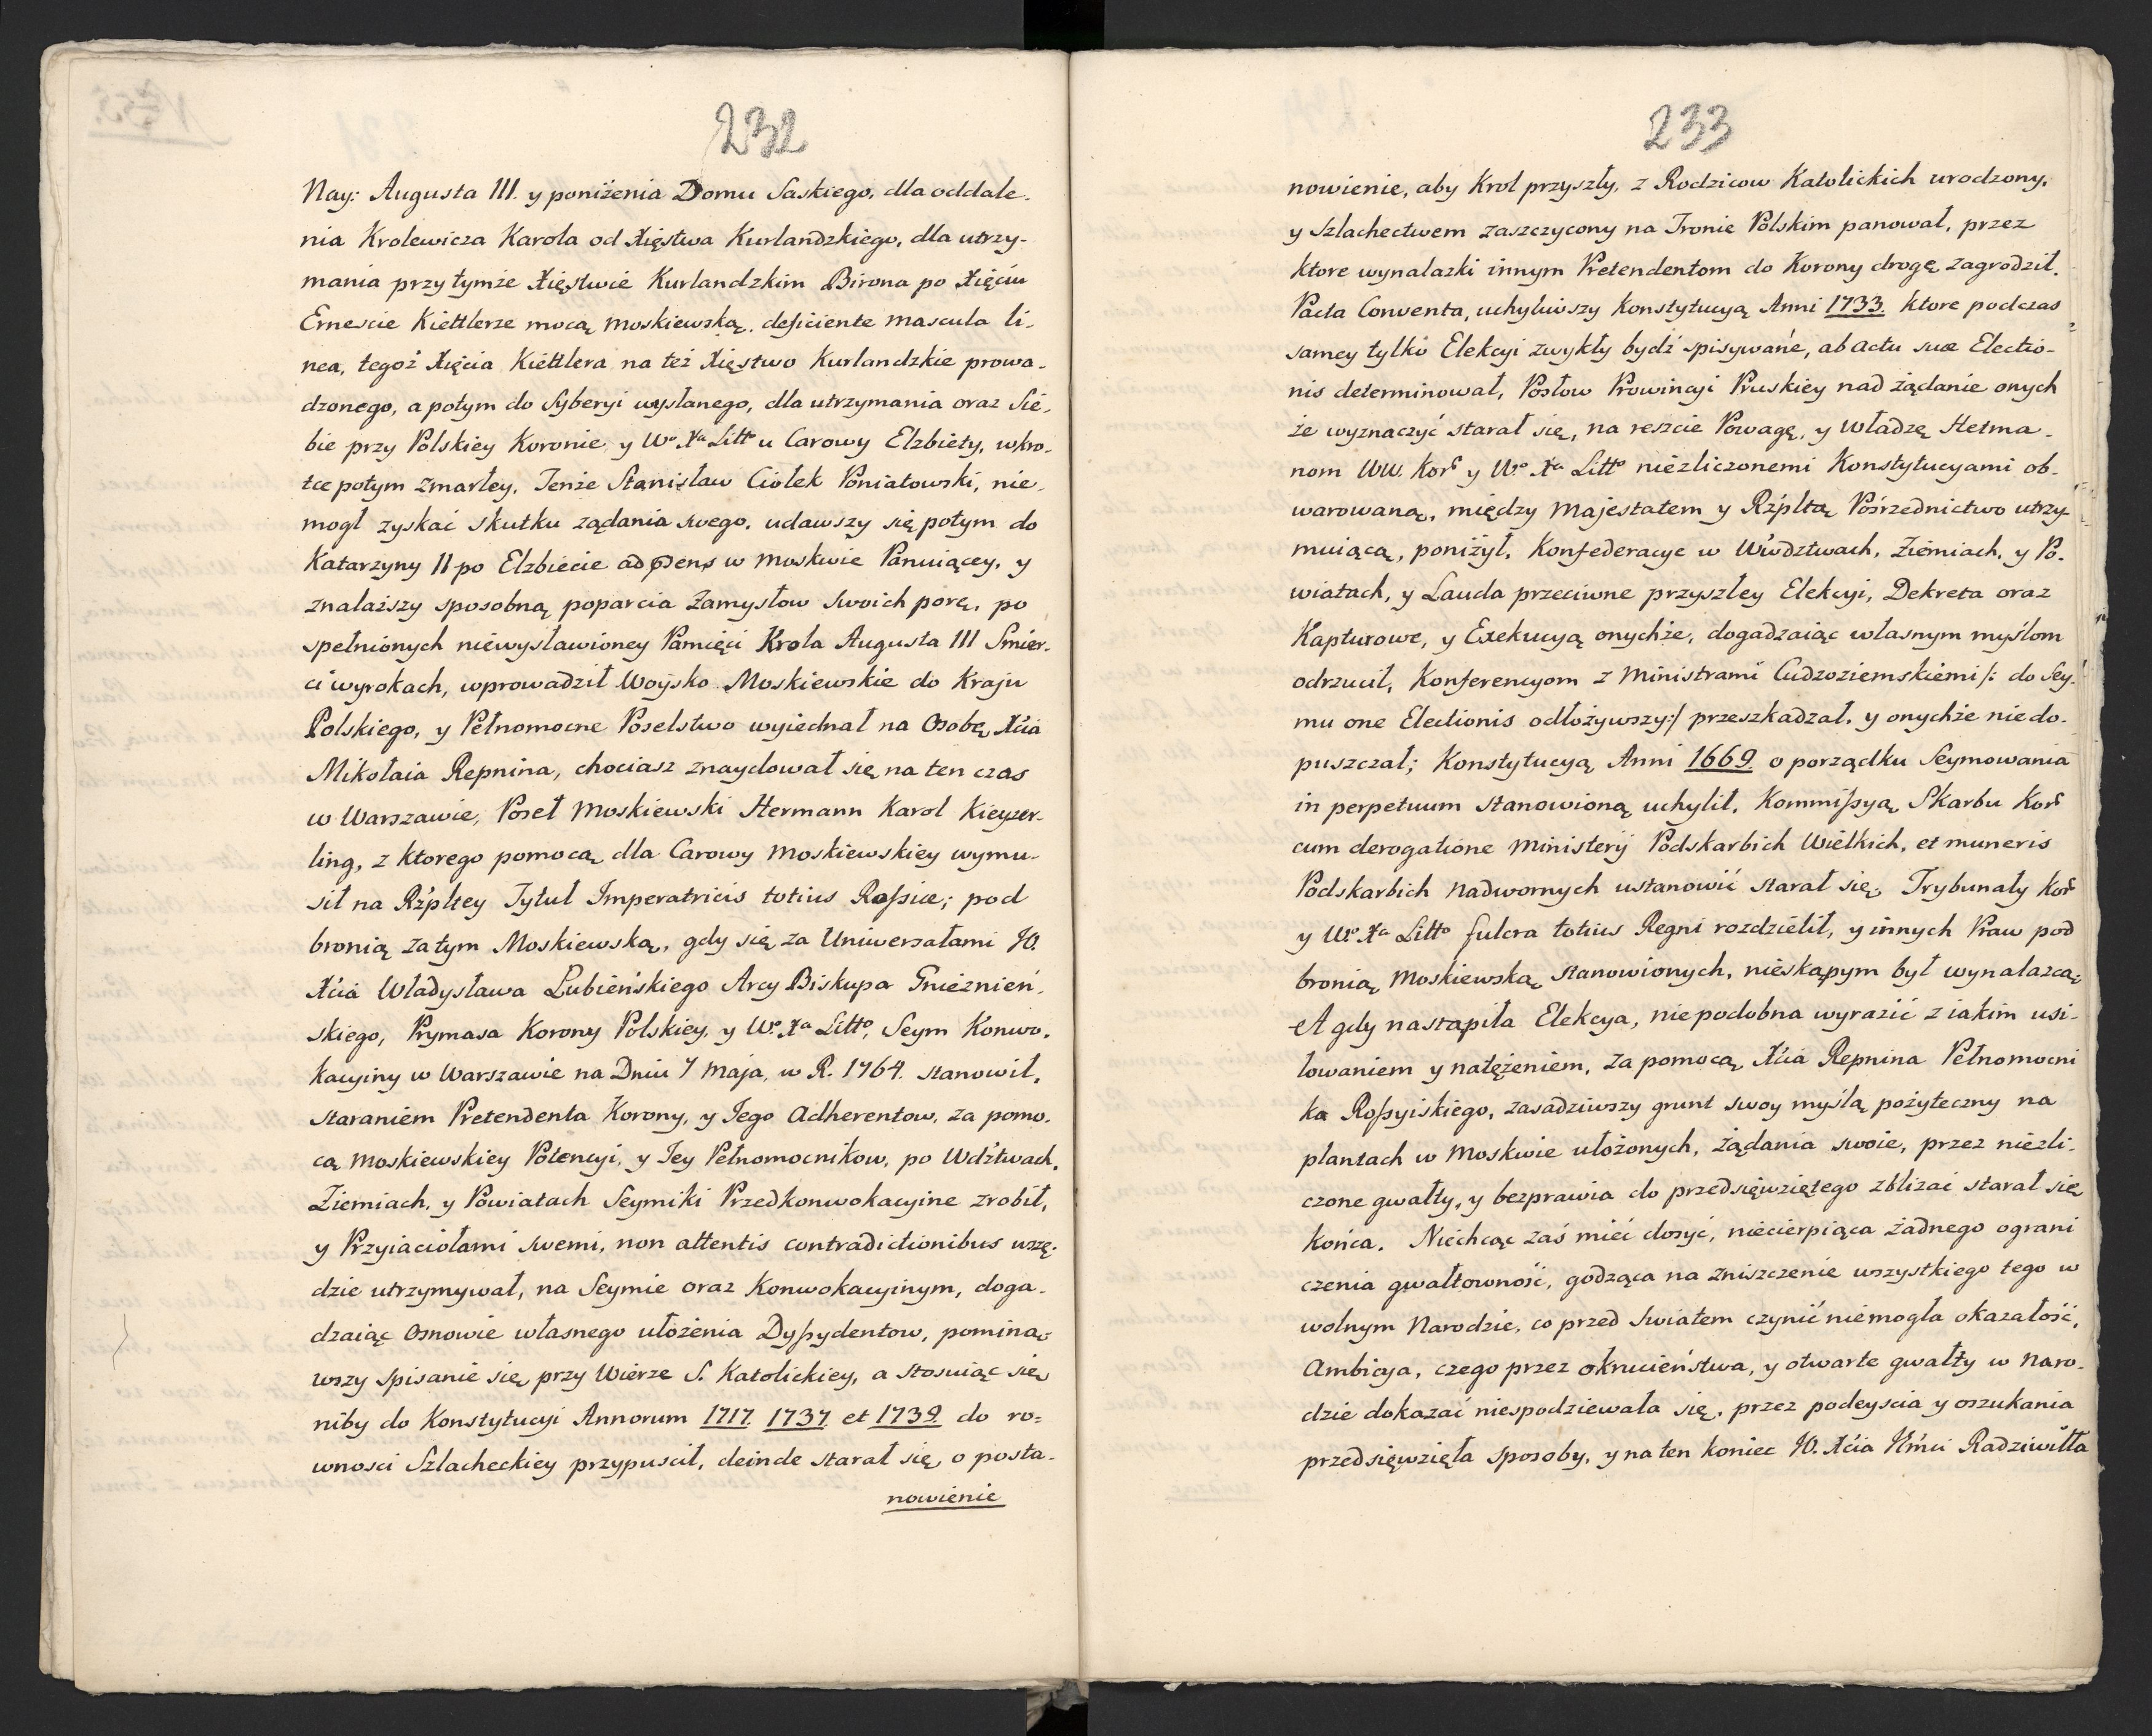 232
Nay: Augusta III. y poniżenia Domu Saskiego, dla oddale-
nia Krolewicza Karola od Xięstwa Kurlandzkiego, dla utrzy-
mania przy tymże Xięstwie Kurlandzkim Birona po Xięciu
Ernescie Kiettlerze mocą moskiewską, deficiente mascula li-
nea, tegoż Xięcia Kiettlera na też Xięstwo Kurlandzkie prowa-
dzonego, a potym do Syberyi wysłanego, dla utrzymania oraz Sie-
bie przy Polskiey Koronie y Wo Xa Litto u Carowy Elzbiety, wkro-
tce potym zmarłey, Tenże Stanisław Ciołek Poniatowski, nie-
mogł zyskać skutku ządania swego, udawszy się potym do
Katarzyny II po Elzbiecie ad pdens w Moskwie Panuiącey, y
znalazszy sposobną poparcia Zamysłow swoich porę, po
spełnionych niewysławioney Pamięci Krola Augusta III Smier-
ci wyrokach, wprowadził Woysko Moskiewskie do Kraju
Polskiego, y Pełnomocne Poselstwo wyiednał na Osobę Xcia
Mikołaia Repnina, chociasz znaydował się na ten czas
w Warszawie, Poseł Moskiewski Hermann Karol Kieyzer-
ling, z ktorego pomocą dla Carowy Moskiewskiey wymu-
sił na Rzpltey Tytuł Imperatricis totius Rossiæ; pod
bronią zatym Moskiewską, gdy się za Uniwersałami JO.
Xcia Władysława Lubieńskiego Arcy Biskupa Gnieźnień-
skiego, Prymasa Korony Polskiey, y Wo Xa Litto, Seym Konwo-
kacyiny w Warszawie na Dniu 7 Maja, w R. 1764. stanowił,
staraniem Pretendenta Korony, y Jego Adherentow, za pomo-
cą Moskiewskiey Potencyi, y Jey Pełnomocnikow, po Wdztwach,
Ziemiach, y Powiatach Seymiki Przedkonwokacyine zrobił,
y Przyiaciołami swemi, non attentis contradictionibus wszę-
dzie utrzymywał, na Seymie oraz Konwokacyinym, doga-
dzaiąc Osnowie własnego ułożenia Dyssydentow, pominą-
wszy spisanie się przy Wierze S. Katolickiey, a stosuiąc się
niby do Konstytucyi Annorum 1717. 1737. et 1739. do ro-
wnosci Szlacheckiey przypuscił, deinde starał się o posta-
nowienie
233
nowienie, aby Krol przyszły, z Rodzicow Katolickich urodzony,
y Szlachectwem zaszczycony na Tronie Polskim panował, przez
ktore wynalazki innym Pretendentom do Korony drogę zagrodził.
Pacta Conventa, uchyliwszy Konstytucyą Anni 1733. ktore podczas
samey tylko Elekcyi zwykły bydź spisywane, ab actu suæ Electio-
nis determinował, Posłow Prowincyi Pruskiey nad żądanie onych
że wyznaczyć starał się, na reszcie Powagę, y Władzę Hetma-
nom WW. Kor y Wo Xa Litto niezliczonemi Konstytucyami ob-
warowaną, między Majestatem y Rzpltą Pośrzednictwo utrzy-
muiącą, poniżył, Konfederacye w Wdztwach, Ziemiach, y Po-
wiatach, y Lauda przeciwne przyszłey Elekcyi, Dekreta oraz
Kapturowe, y Exekucyą onychże, dogadzaiąc własnym myślom
odrzucił, Konferencyom z Ministrami Cudzoziemskiemi /: do Sey-
mu one Electionis odłożywszy:/ przeszkadzał, y onychże niedo-
puszczał; Konstytucyą Anni 1669 o porządku Seymowania
in perpetuum stanowioną uchylił, Kommissyą Skarbu Kor
cum derogatione Ministerij Podskarbich Wielkich, et muneris
Podskarbich Nadwornych ustanowić starał się, Trybunały Kor
y Wo Xa Litto fulcra totius Regni rozdzielił, y innych Praw pod
bronią Moskiewską stanowionych, nieskąpym był wynalazcą;
A gdy nastąpiła Elekcya, niepodobna wyrazić z iakim usi-
łowaniem y natężeniem, za pomocą Xcia Repnina Pełnomocni
ka Rossyiskiego, zasadziwszy grunt swoy myślą pożyteczny na
plantach w Moskwie ułożonych, żądania swoie, przez niezli-
czone gwałty, y bezprawia do przedsięwziętego zbliżać starał się
Końca. Niechcąc zaś mieć dosyć, niecierpiąca żadnego ograni
czenia gwałtowność, godząca na zniszczenie wszystkiego tego w
wolnym Narodzie, co przed Swiatem czynić niemogła okazałość,
Ambicya, czego przez okrucieństwa, y otwarte gwałty w Naro-
dzie dokazać niespodziewała się, przez podeyscia y oszukania
przedsięwzięła sposoby, y na ten koniec JO. Xcia Jmci Radziwiłła